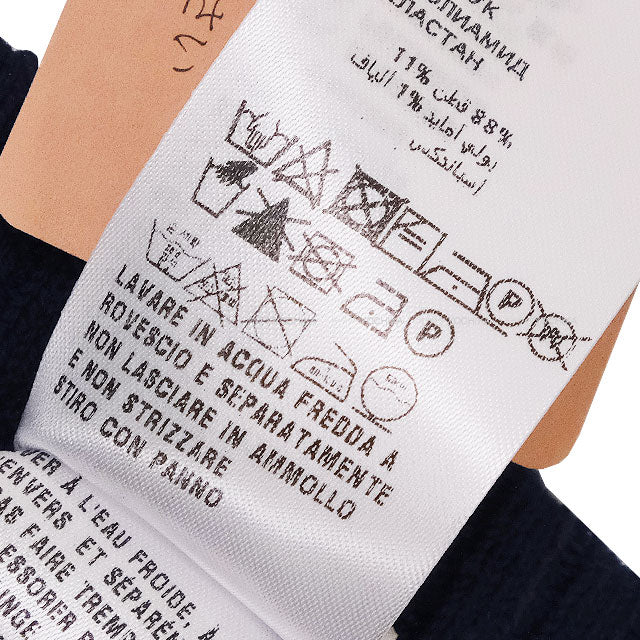 ПОЛИАМИД
ЭЛАСТАН
88% قطن 11%
بولي امايد 1% ألياف
اسباندكس
P
P
LAVARE IN ACQUA FREDDA A
ROVESCIO E SEPARATAMENTE
NON LASCIARE IN AMMOLLO
E NON STRIZZARE
STIRO CON PANNO
ER À L'EAU FROIDE, À
ENVERS ET SÉPARÉM
AS FAIRE TREMP
ESSORER